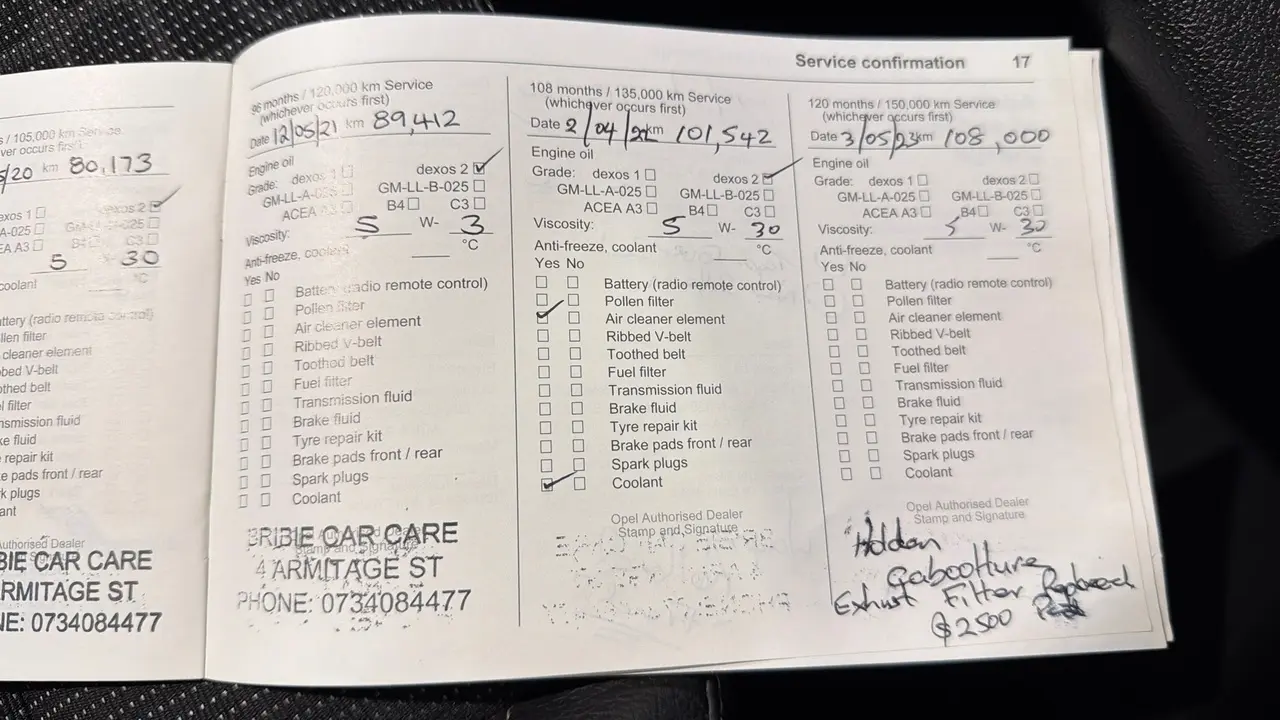 Service confirmation 17
s / 105,000 km Service
ver occurs first)
/20 km 80,173
exos 1 dexos 2
A-025 GM-LL-B-025
EA A3 B4 C3
5 W- 30
coolant °C
ttery (radio remote control)
llen filter
cleaner element
bed V-belt
thed belt
l filter
nsmission fluid
ke fluid
repair kit
e pads front / rear
k plugs
ant
Authorised Dealer
BIE CAR CARE
RMITAGE ST
NE: 0734084477
96 months / 120,000 km Service
(whichever occurs first)
Date 12/05/21 km 89,412
Engine oil
Grade: dexos 1 dexos 2
GM-LL-A-025 GM-LL-B-025
ACEA A3 B4 C3
Viscosity: 5 W- 3
Anti-freeze, coolant °C
Yes No
Battery (radio remote control)
Pollen filter
Air cleaner element
Ribbed V-belt
Toothed belt
Fuel filter
Transmission fluid
Brake fluid
Tyre repair kit
Brake pads front / rear
Spark plugs
Coolant
BRIBIE CAR CARE
Stamp and Signature
4 ARMITAGE ST
PHONE: 0734084477
108 months / 135,000 km Service
(whichever occurs first)
Date 2/04/22 km 101,542
Engine oil
Grade: dexos 1 dexos 2
GM-LL-A-025 GM-LL-B-025
ACEA A3 B4 C3
Viscosity: 5 W- 30
Anti-freeze, coolant °C
Yes No
Battery (radio remote control)
Pollen filter
Air cleaner element
Ribbed V-belt
Toothed belt
Fuel filter
Transmission fluid
Brake fluid
Tyre repair kit
Brake pads front / rear
Spark plugs
Coolant
Opel Authorised Dealer
Stamp and Signature
120 months / 150,000 km Service
(whichever occurs first)
Date 3/05/23 km 108,000
Engine oil
Grade: dexos 1 dexos 2
GM-LL-A-025 GM-LL-B-025
ACEA A3 B4 C3
Viscosity: 5 W- 30
Anti-freeze, coolant °C
Yes No
Battery (radio remote control)
Pollen filter
Air cleaner element
Ribbed V-belt
Toothed belt
Fuel filter
Transmission fluid
Brake fluid
Tyre repair kit
Brake pads front / rear
Spark plugs
Coolant
Opel Authorised Dealer
Stamp and Signature
Holden
Caboolture
Exhust Filter Replaced
$2500